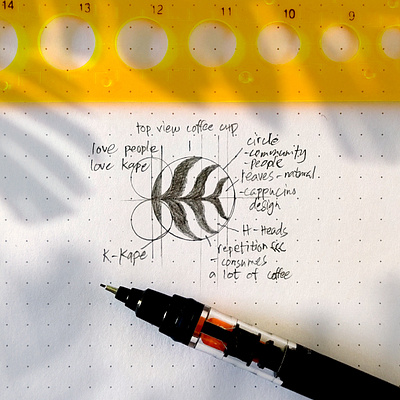 14 13 12 11 10 9
top view coffee cup
love people
love kape
circle
-community
-people
leaves - natural
-cappucino
design
H-Heads
K-Kape
repetition
- consumes
a lot of coffee